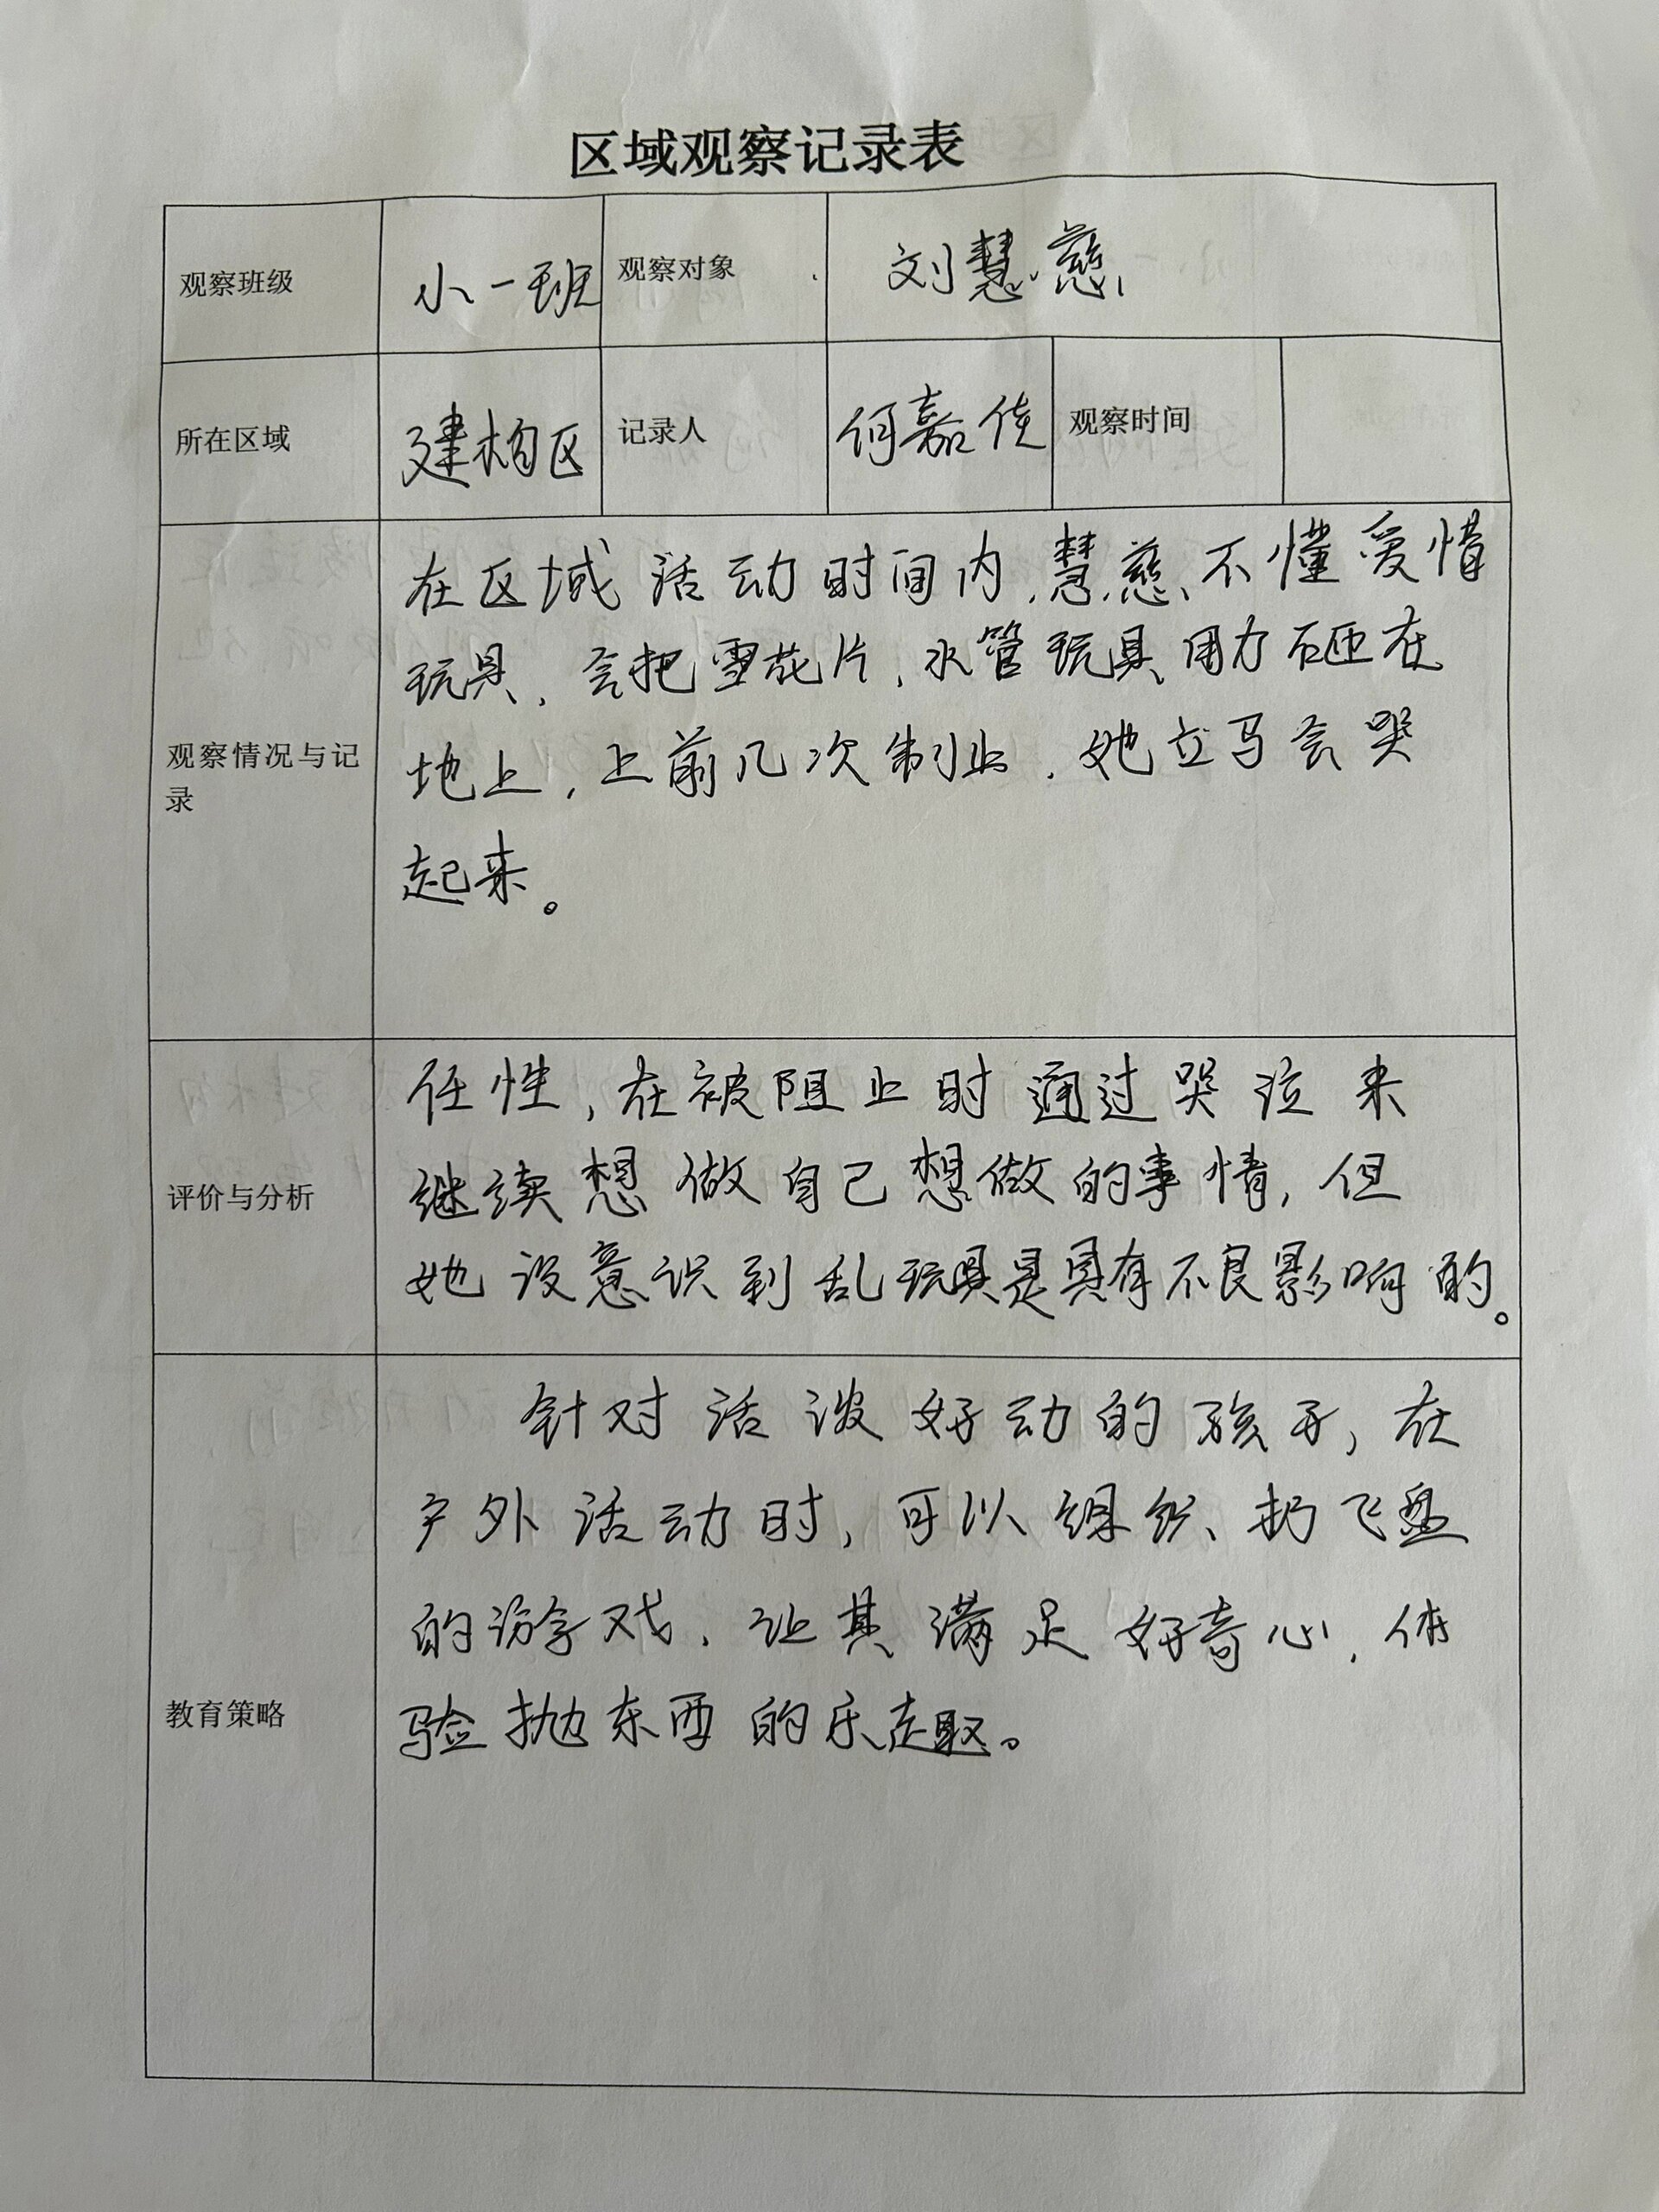 区域观察记录表
观察班级 小一班 观察对象 刘慧慈
所在区域 建构区 记录人 何嘉佳 观察时间
观察情况与记
录
在区域活动时间内,慧慈、不懂爱惜
玩具,会把雪花片,水管玩具用力砸在
地上,上前几次制止,她立马会哭
起来。
评价与分析
任性,在被阻止时通过哭泣来
继续想做自己想做的事情,但
她没意识到乱玩具是具有不良影响的。
教育策略
针对活泼好动的孩子,在
户外活动时,可以组织、扔飞盘
的游戏,让其满足好奇心,体
验抛东西的乐趣。